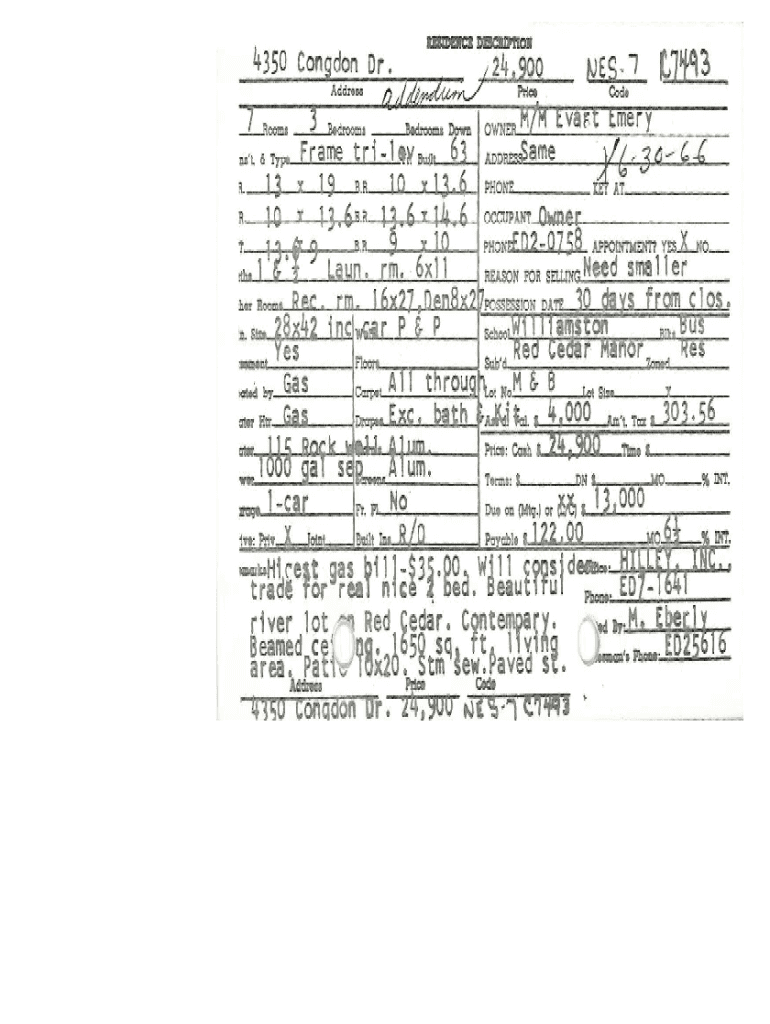 RESIDENCE DESCRIPTION
4350 Congdon Dr. 24,900 NES-7 C7493
Address addendum Price Code
7 Rooms 3 Bedrooms Bedrooms Down OWNER M/M Evart Emery
ns't. & Type Frame tri-lev Built 63 ADDRESS Same X6-30-66
R. 13 x 19 B.R. 10 x13.6 PHONE KEY AT
R. 10 x 13.6 B.R. 13.6 x 14.6 OCCUPANT Owner
T. 13.6 9 B.R. 9 x10 PHONE ED2-0758 APPOINTMENT? YES X NO
ths 1 & ½ Laun. rm. 6x11 REASON FOR SELLING Need smaller
her Rooms Rec. rm. 16x27,Den8x27 POSSESSION DATE 30 days from clos.
n. Size 28x42 inc car P & P School Williamston Bus
sement Yes Floors Sub'd Red Cedar Manor Zoned Res
eated by Gas Carpet All through Lot No. M & B Lot Size x
ater Htr. Gas Drapes Exc. bath & Kit. Ass'd Val. $ 4,000 An't. Tax $ 303.56
ater 115 Rock well Alum. Price: Cash $ 24,900 Time $
wer 1000 gal sep Screens Alum. Terms: $ DN $ MO. % INT.
arage 1-car Fr. Pl. No Due on (Mtg.) or $ xx 13,000
ive: Priv. X Joint Built Ins R/O Payable $ 122.00 MO. 6½ % INT.
emarks Hicest gas bill-$35.00. Will consider HILLEY, INC.,
trade for real nice 2 bed. Beautiful Phone: ED7-1641
river lot on Red Cedar. Contempary. ed By: M. Eberly
Beamed ceiling. 1650 sq. ft. living esman's Phone: ED25616
area. Patio 10x20. Stm sew.Paved st.
Address Price Code
4350 Congdon Dr. 24,900 NES-7 C7493